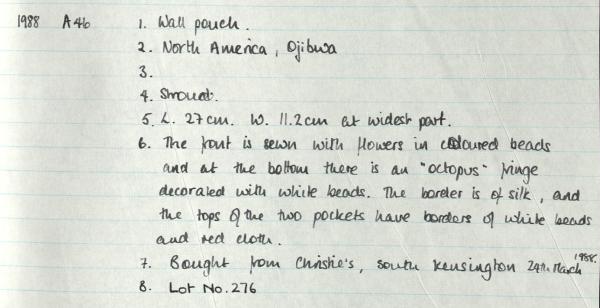 1988 A46 1. Wall pouch.
2. North America, Ojibwa
3.
4. Stroud.
5. L. 27cm. W. 11.2cm at widest part.
6. The front is sewn with flowers in coloured beads
and at the bottom there is an "octopus" fringe
decorated with white beads. The border is of silk, and
the tops of the two pockets have borders of white beads
and red cloth.
7. Bought from Christie's, South Kensington 24th March 1988.
8. Lot No. 276